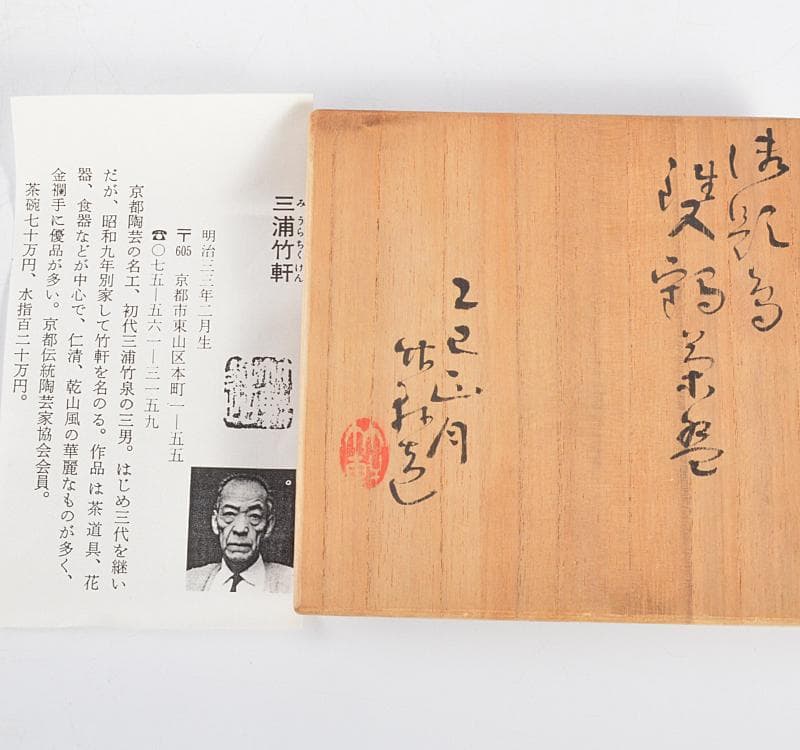 乙巳正月
竹軒造
三浦竹軒
みうらちくけん
明治三三年二月生
〒605 京都市東山区本町一ー五五
☎〇七五ー五六一ー三一五九
京都陶芸の名工、初代三浦竹泉の三男。はじめ三代を継い
だが、昭和九年別家して竹軒を名のる。作品は茶道具、花
器、食器などが中心で、仁清、乾山風の華麗なものが多く、
金襴手に優品が多い。京都伝統陶芸家協会会員。
茶碗七十万円、水指百二十万円。